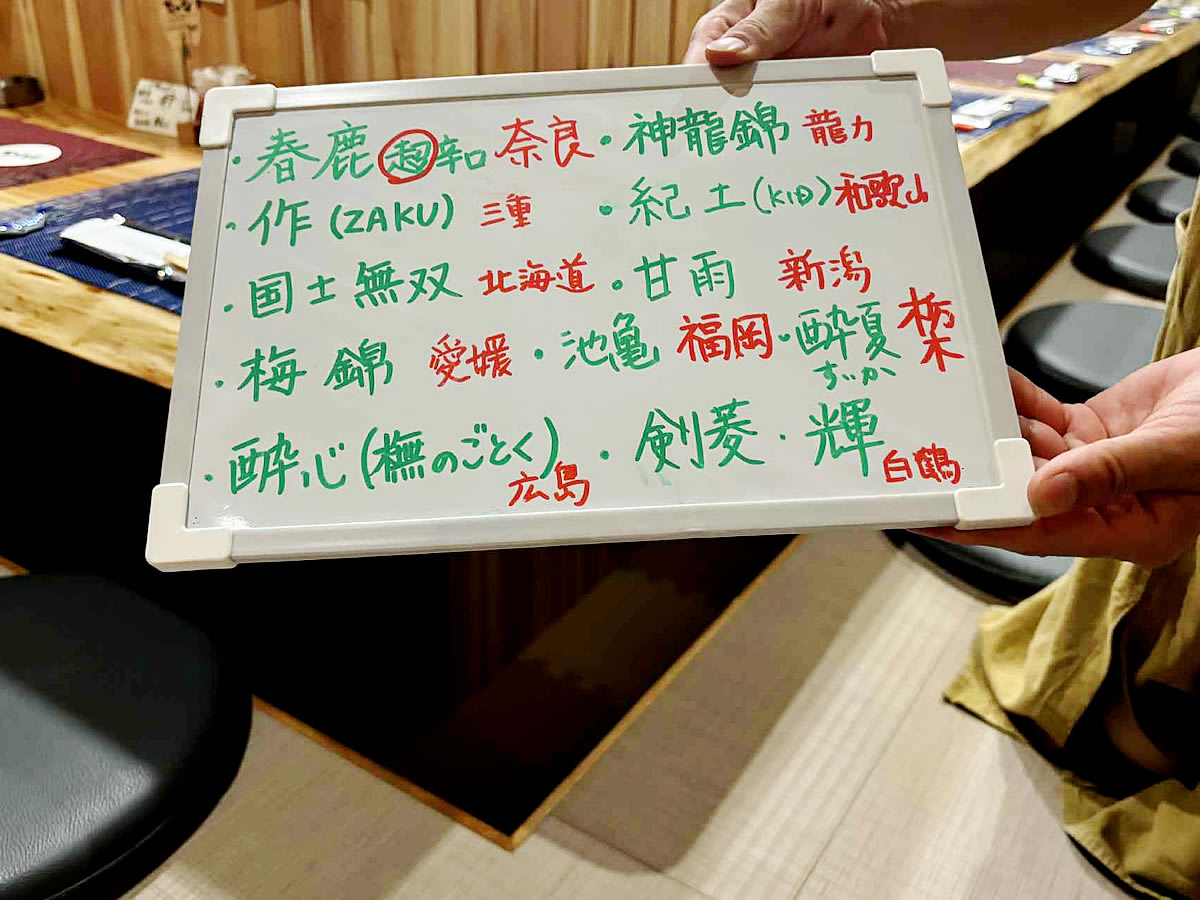 ・春鹿 超辛口 奈良 ・神龍錦 龍力
・作(ZAKU) 三重 ・紀土(KID) 和歌山
・国士無双 北海道 ・甘雨 新潟
・梅錦 愛媛 ・池亀 福岡 ・酔夏 栃木
すいか
・酔心(橅のごとく) 広島 ・剣菱 ・輝 白鶴